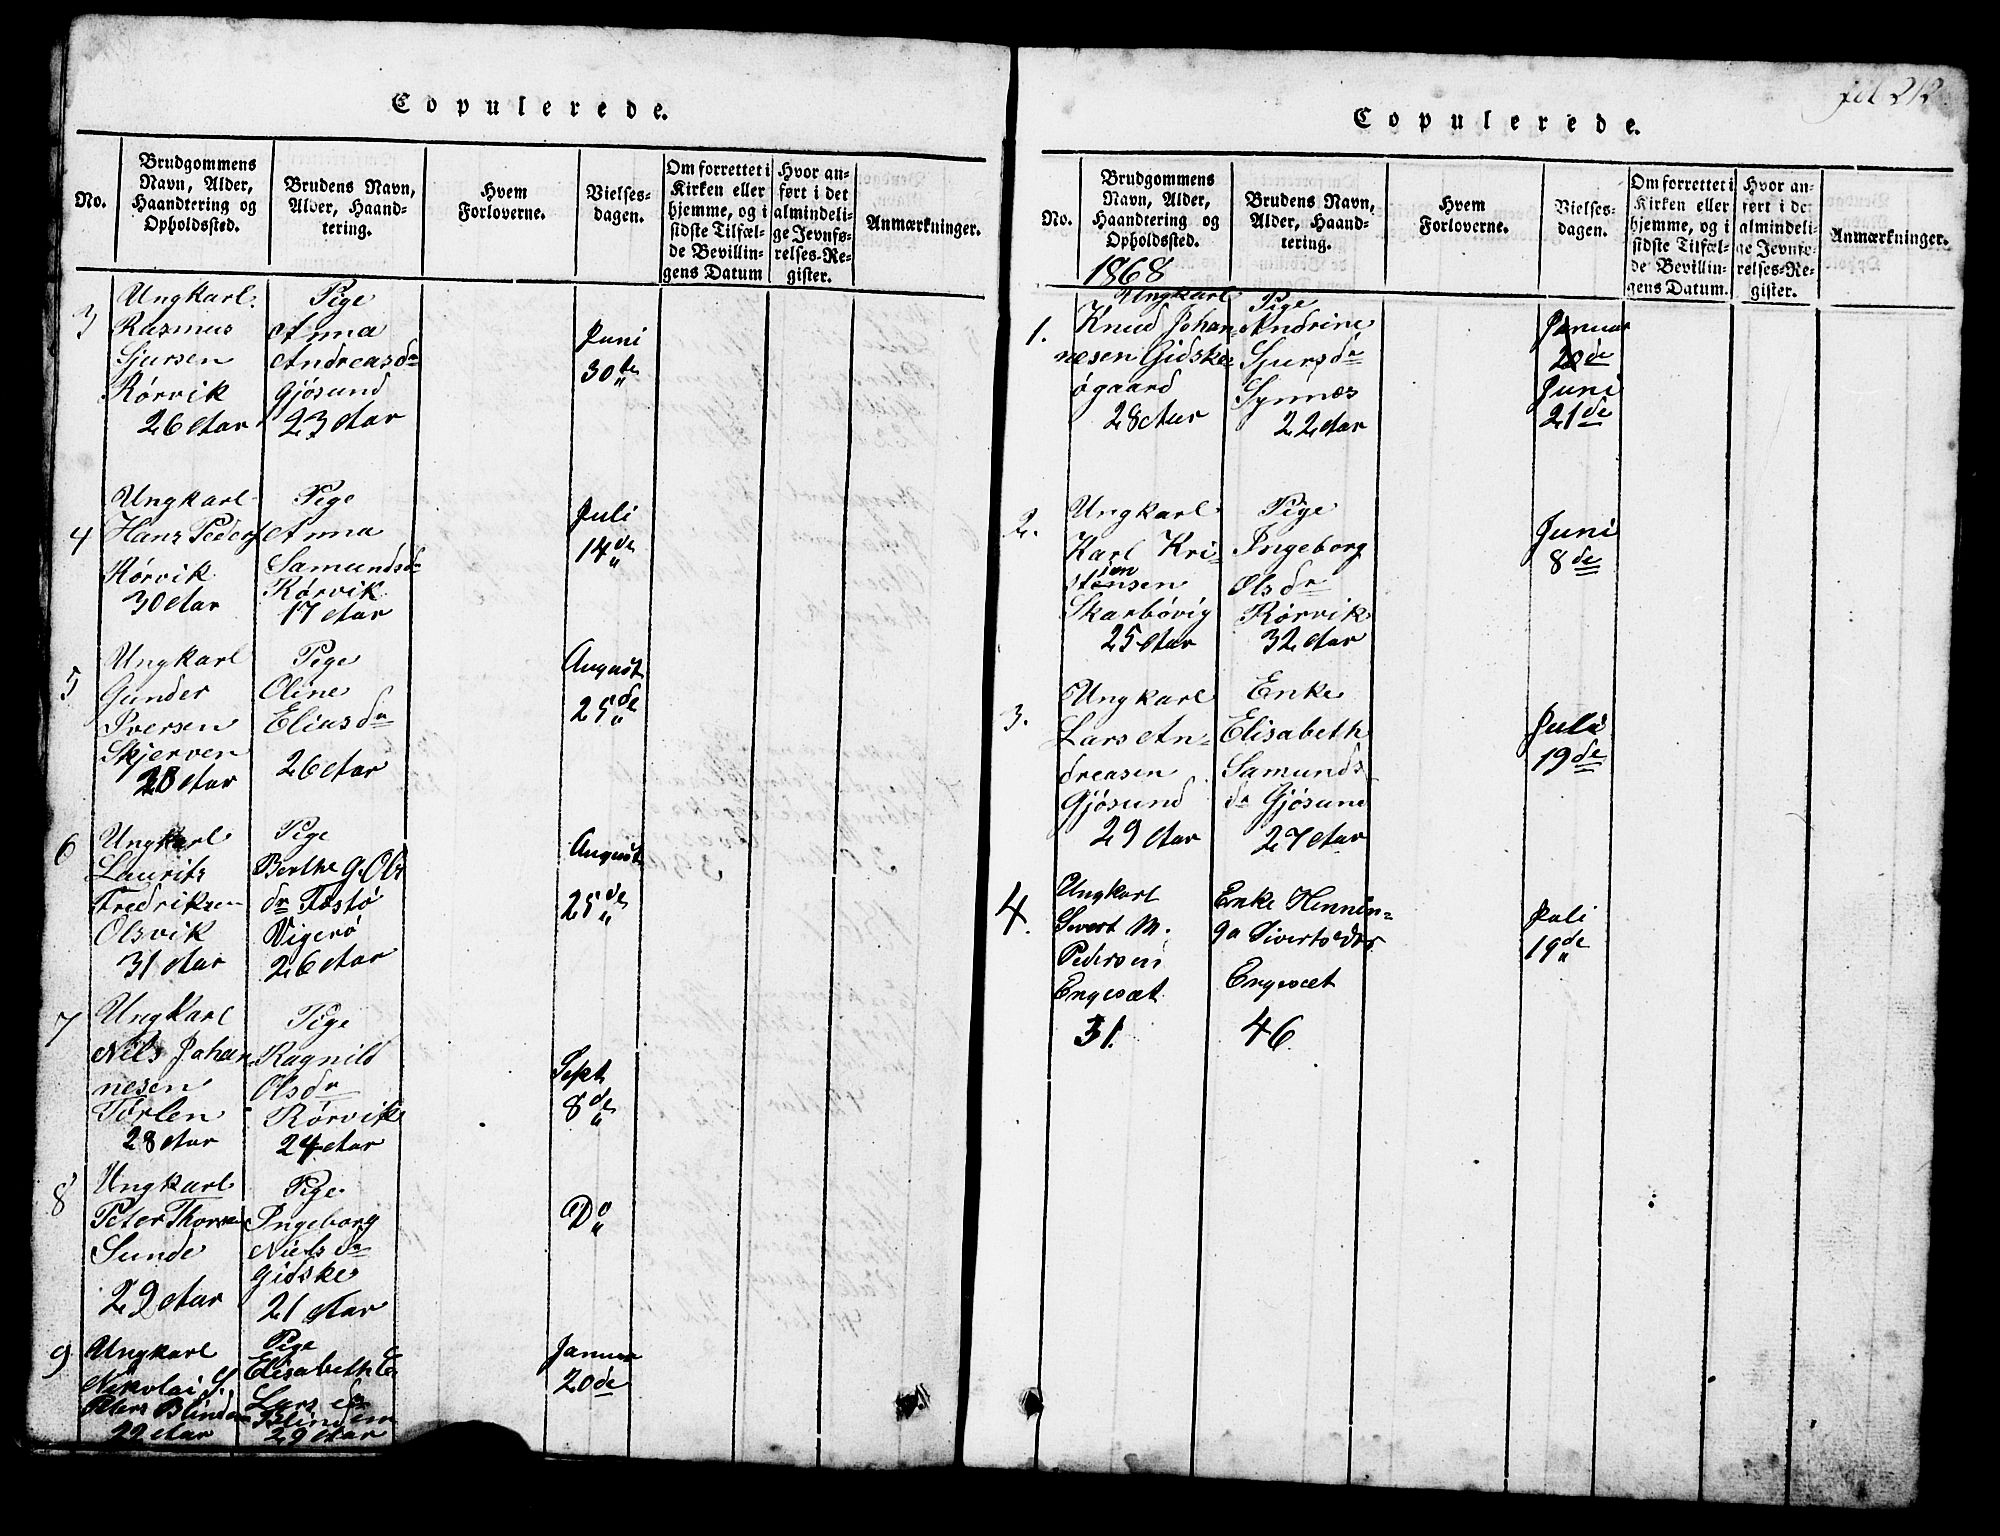 Copulerede.
No.
Brudgommens
Navn, Alder,
Haandtering og
Opholdssted.
Brudens Navn,
Alder, Haand-
tering.
Hvem
Forloverne.
Vielses-
dagen.
Om forrettet i
Kirken eller
hjemme, og i
sidste Tilfæl-
de Bevillin-
gens Datum
Hvor an-
ført i det
almindeli-
ge Jevnfø-
relses-Re-
gister.
Anmærkninger.
3
Ungkarl
Rasmus
Sjursen
Rørvik
26 Aar
Pige
Anna
Andreasdr
Gjøsund
23 Aar
Juni
30te
4
Ungkarl
Hans Peders
Rørvik
30 Aar
Pige
Anna
Samundsdr
Rørvik
17 Aar
Juli
14de
5
Ungkarl
Gunder
Iversen
Skjerven
28 Aar
Pige
Oline
Eliasdr
26 Aar
August
25de
6
Ungkarl
Laurits
Fredriksen
Olsvik
31 Aar
Pige
Berthe G. Ols
dr Fostø
Vigerø
26 Aar
August
25de
7
Ungkarl
Nils Johan
nesen
Tørlen
28 Aar
Pige
Ragnild
Olsdr
Rørvik
24 Aar
Sept
8de
8
Ungkarl
Peter Thorsen
Sunde
29 Aar
Pige
Ingeborg
Nielsdr
Gidske
21 Aar
Do
9
Ungkarl
Nikolai S.
Peters Blindem
22 Aar
Pige
Elisabeth E
Larsdr
Blindem
29 Aar
Januar
20de
fol 212
Copulerede.
No.
Brudgommens
Navn, Alder,
Haandtering og
Opholdssted.
Brudens Navn,
Alder, Haand-
tering.
Hvem
Forloverne.
Vielses-
dagen.
Om forrettet i
Kirken eller
hjemme, og i
sidste Tilfæl-
de Bevillin-
gens Datum.
Hvor an-
ført i det
almindeli-
ge Jevnfø-
relses-Re-
gister.
Anmærkninger.
1868
1.
Ungkarl
Knud Johan-
nesen Gidske
øgaard
28 Aar
Pige
Andrine
Sjursdr
Synnes
22 Aar
Januar
20de
Juni
21de
2.
Ungkarl
Karl Kri-
sian
stensen
Skarbøvig
25 Aar
Pige
Ingeborg
Olsdr
Rørvik
32 Aar
Juni
8de
3.
Ungkarl
Lars An-
dreasen
Gjøsund
29 Aar
Enke
Elisabeth
Samunds
dr Gjøsund
27 Aar
Juli
19de
4.
Ungkarl
Sivert M.
Pedersen
Engesæt
31.
Enke Hennin-
ga Sivertsdtr
Engesæt
46
Juli
19de